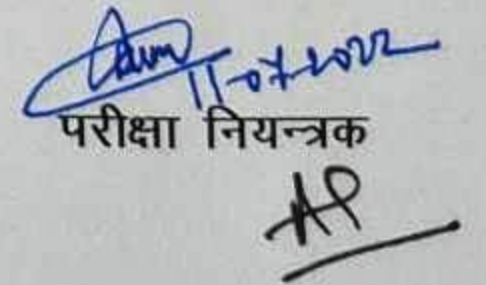 11-07-2022
परीक्षा नियन्त्रक
AP